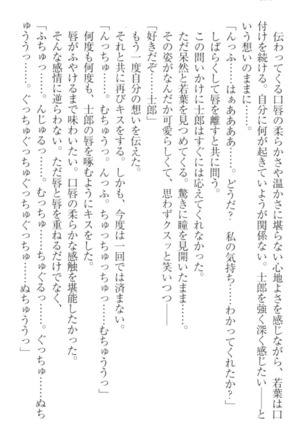 伝わってくる口唇の柔らかさや温かさに堪らない心地よさを感じながら、若葉は口
付けを続ける。自分に何が起きていようが関係ない。士郎を強く深く感じたい――と
いう想いのままに……。
「んっふ……はぁあああ……。どうだ？　私の気持ち……わかってくれたか？」
しばらくして唇を離すと共に問う。
この問いかけに士郎はすぐには応えてくれなかった。
ただ呆然と若葉を見つめてくる。驚きに瞳を見開いたまま……。
その姿がなんだか可愛らしくて、思わずクスッと笑いつつ――
「好きだぞ……士郎」
もう一度自分の想いを伝えた。
それと共に再びキスをする。しかも、今度は一回では済まない。
「んっちゅ……むちゅうっ。んっふ、ちゅっちゅっちゅっ……むちゅううっ」
何度も何度も、士郎の唇を啄むようにキスをした。
唇がふやけるまで味わいたい。口唇の柔らかな感触を堪能したかった。
そんな感情に逆らわない。ただ唇と唇を重ねるだけでなく、
「ふちゅっ……。んじゅるっ……。むっちゅ……ちゅぐるっ……。ぐっちゅ……ぬち
ゅううっ……。ぐちゅっぐちゅっぐちゅっぐちゅっ……ぬちゅううっ」